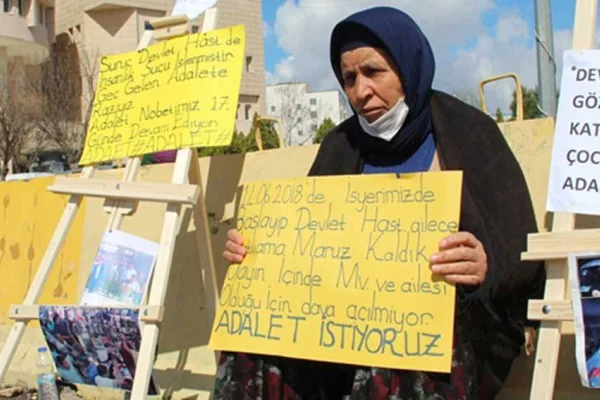 Suruç Devlet Hast.de
İnsanlık Suçu İşlenmiştir
Geç Gelen Adalete
Razıyız
Adalet Nobetimiz 17.
Günde Devam Ediyor
ADALET # ADALET #
14.06.2018'de İşyerimizde
Başlayıp Devlet Hast. ailece
Maruz Kaldık
olayın İçinde Mv. ve ailesi
Olduğu İçin dava açılmıyor.
ADALET İSTİYORUZ